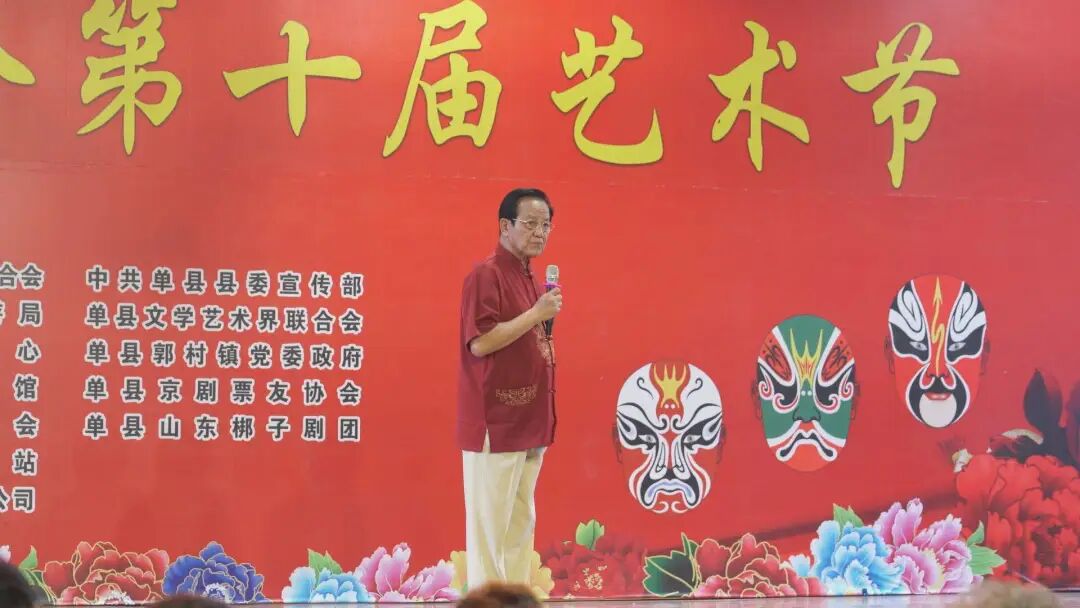 第十届艺术节
合会
局
心
馆
会
站
公司
中共单县县委宣传部
单县文学艺术界联合会
单县郭村镇党委政府
单县京剧票友协会
单县山东梆子剧团